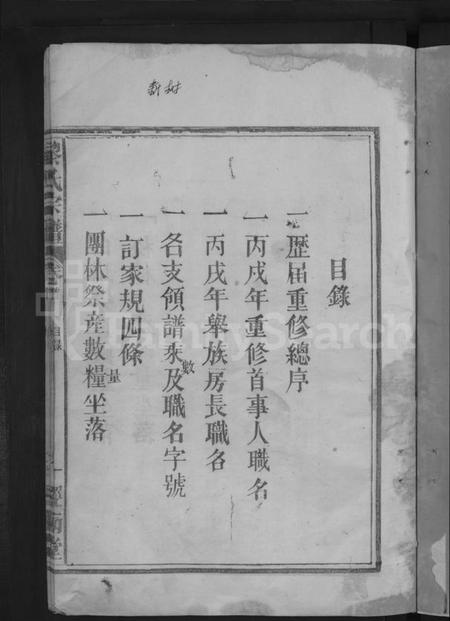 新树
目錄
一歷屆重修總序
一丙戍年重修首事人職名
一丙戌年舉族房長職名
一名支領譜永及職名字號
數
一訂家規四條
一團林祭産數糧坐落
量
氏宗譜
目錄
一
堂
FamilySearch